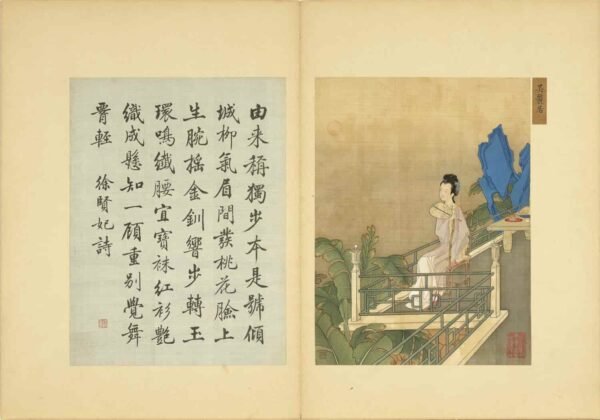 由來稱獨步本是號傾
城柳氣眉間發桃花臉上
生腕搖金釧響步轉玉
環鳴纖腰宜寶袜紅衫艷
織成懸知一顧重別覺舞
輕 徐賢妃詩